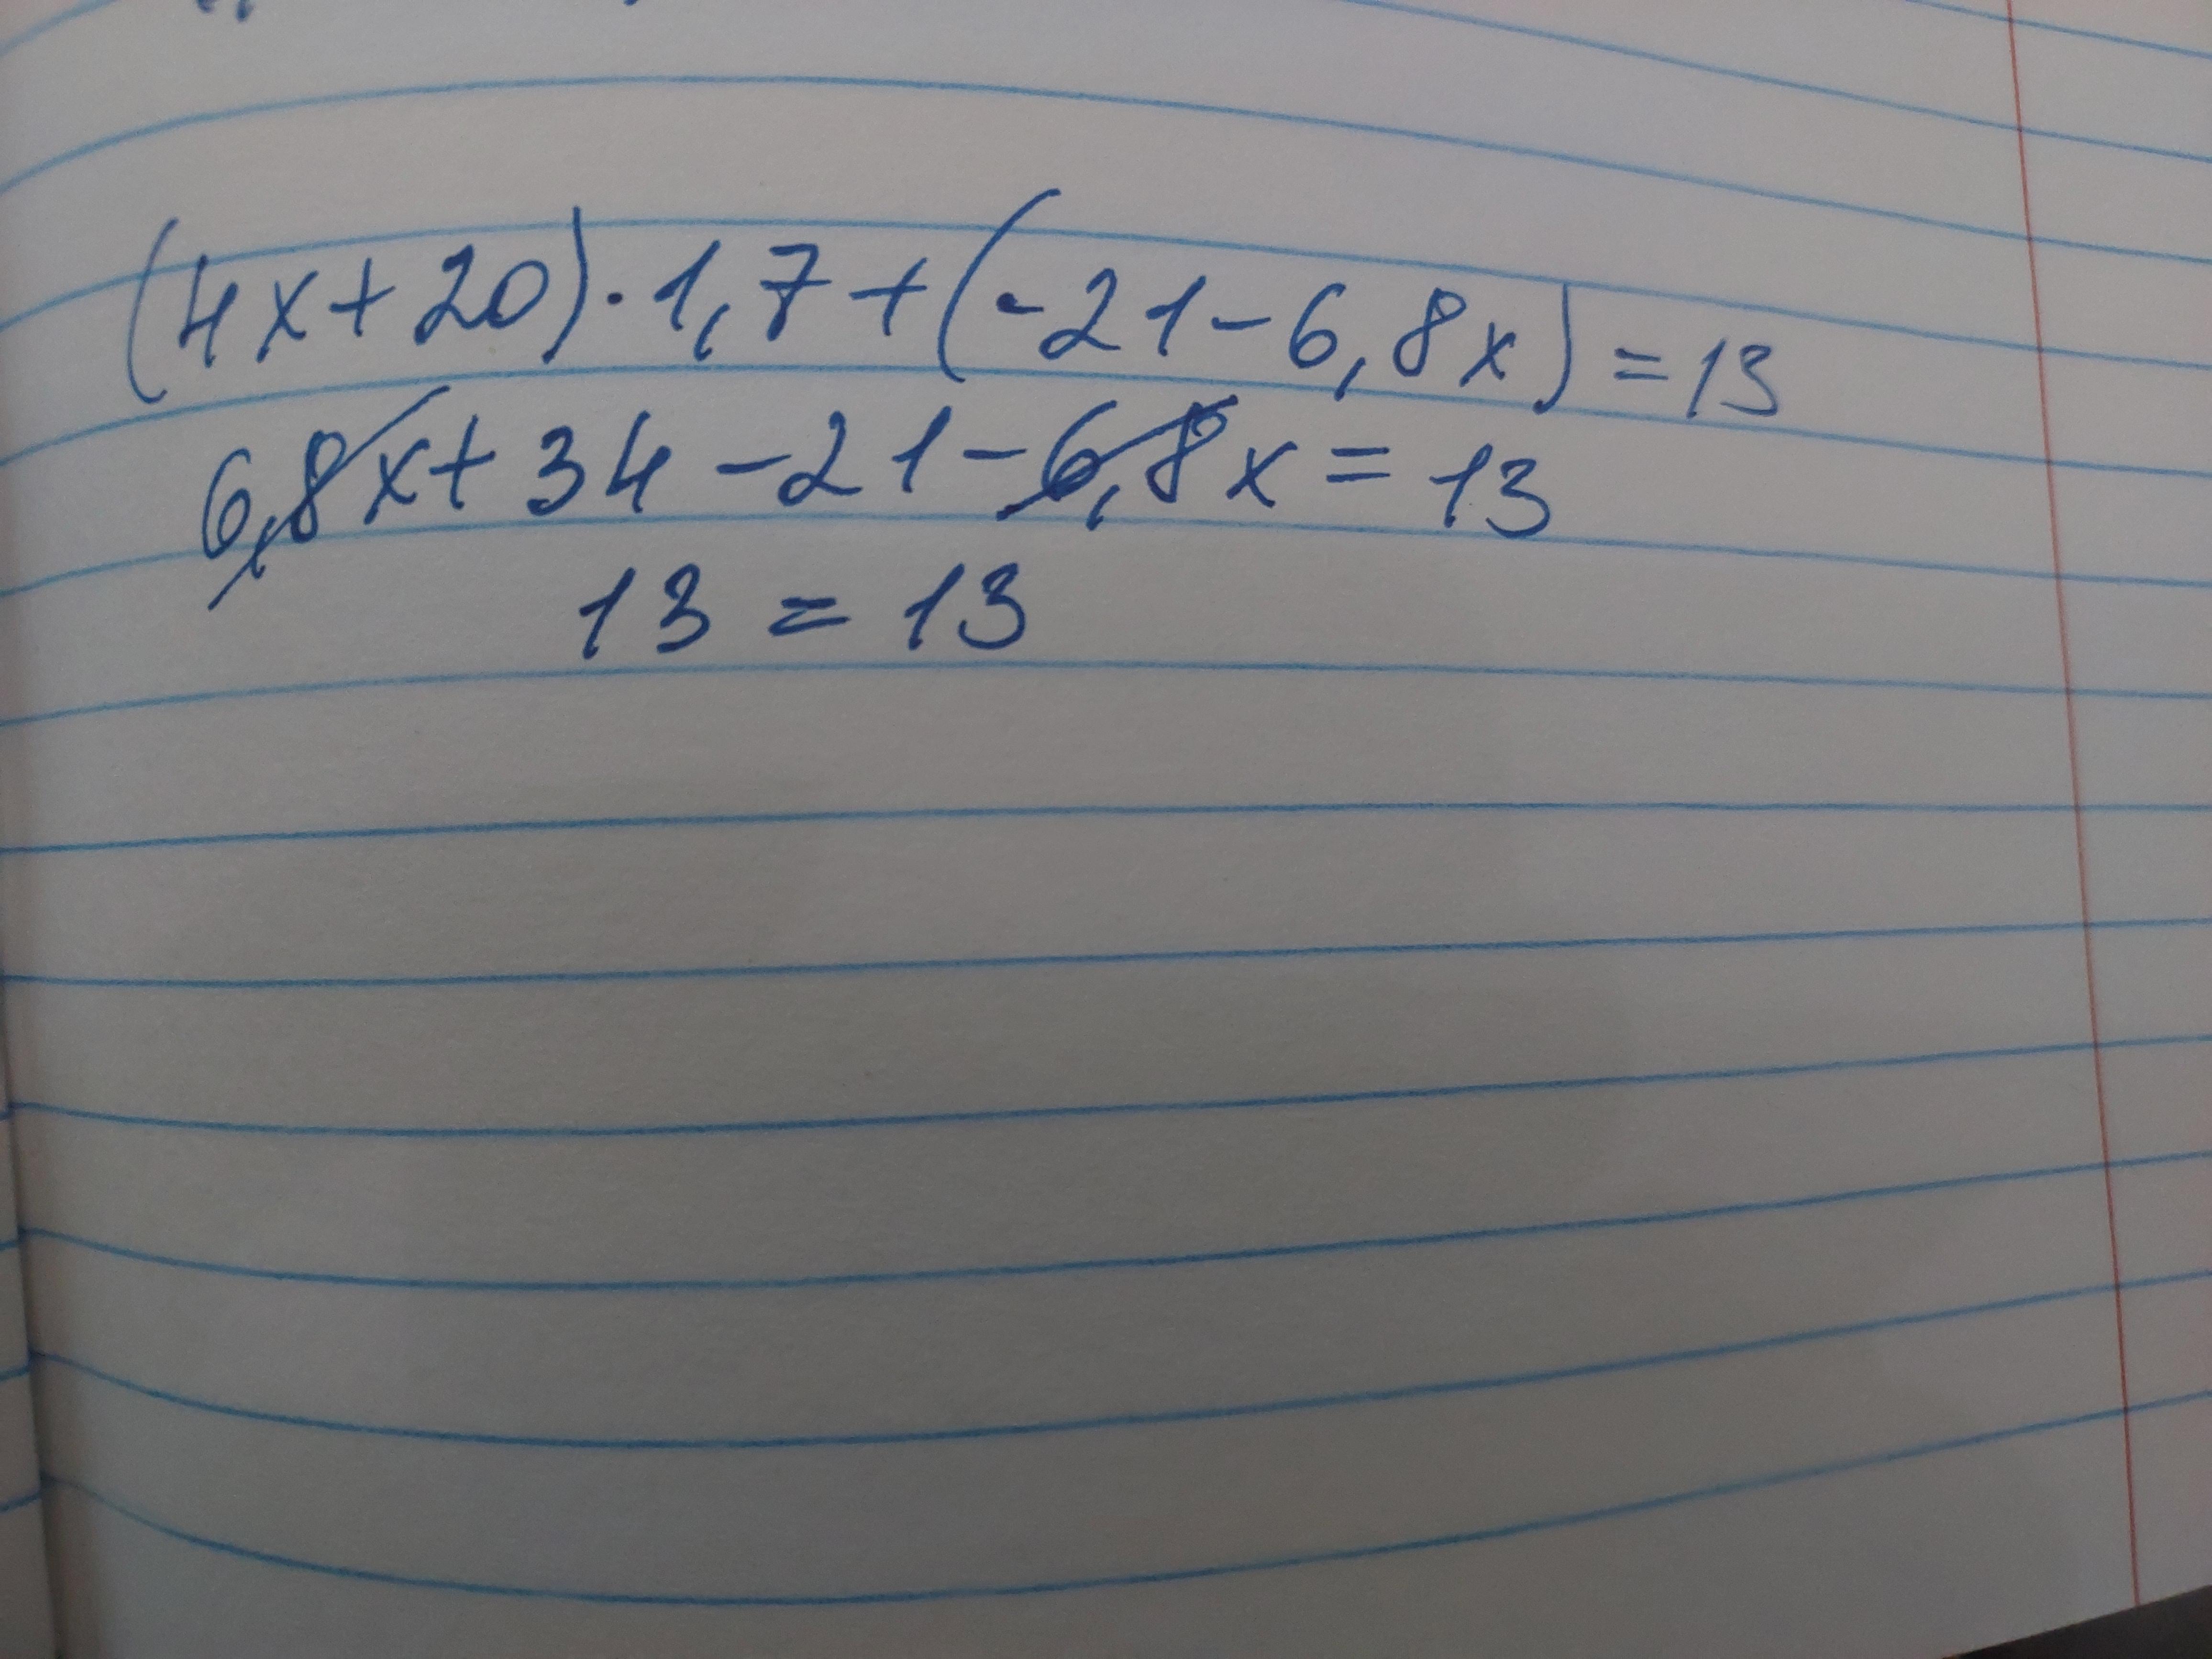 (4x+20)·1,7+(-21-6,8x)=13
6,8x+34-21-6,8x=13
13=13